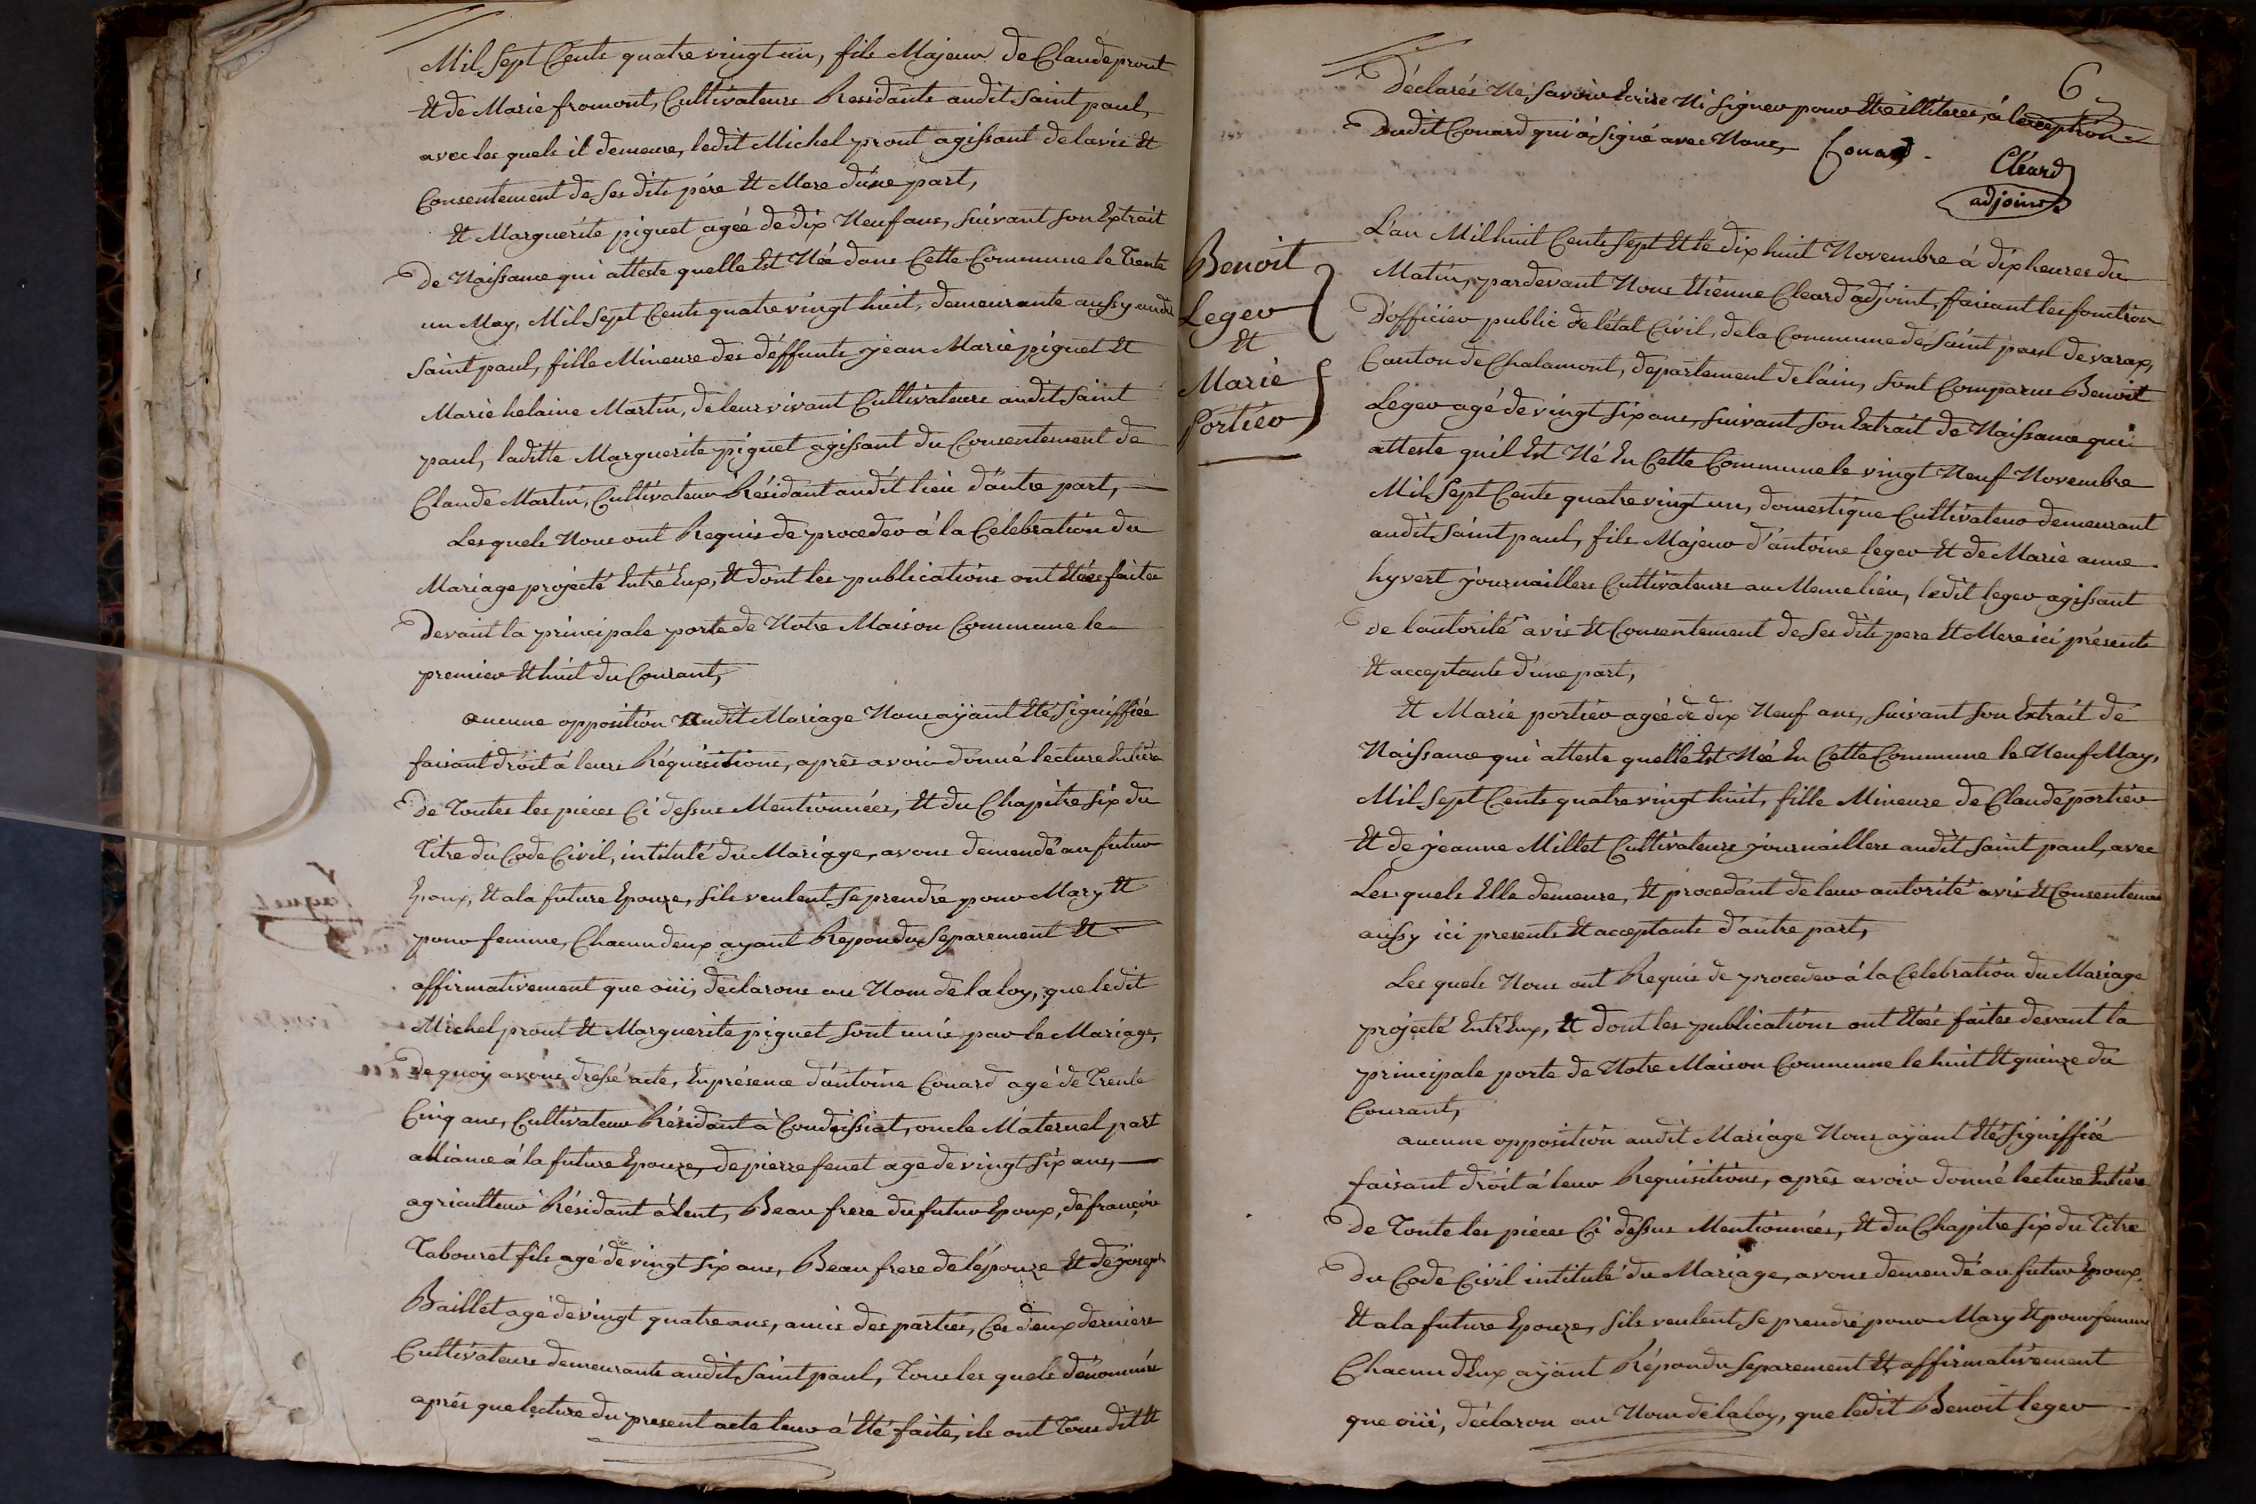 Mil Sept Cents quatre vingt un, fils Majeur de Claude prout
Et de Marie fromont, Cultivateurs Residants audit Saint paul,
avec les quels il demeure, ledit Michel prout agissant de lavis Et
Consentement de Ses dits pére Et Mere d'une part,
Et Marguerite piguet agée de dix Neuf ans, Suivant Son Extrait
De Naissance qui atteste quelle Est Née dans Cette Commune le Trente
un May, Mil Sept Cents quatre vingt huit, demeurante aussy audit
Saint paul, fille Mineure des déffunts jean Marie piguet Et
Marie helaine Martin, de leur vivant Cultivateurs audit Saint
paul, laditte Marguerite piguet agissant du Consentement de
Claude Martin, Cultivateur Résidant audit lieu d'autre part,
Les quels Nous ont Requis de proceder á la Celebration du
Mariage projecté Entré Eux, Et dont les publications ont Etées faites
Devant la principale porte de Notre Maison Commune le
premier Et huit du Courant,
aucune opposition audit Mariage Nous ayant Eté Signiffiée
faisant droit á leurs Réquisitions, aprés avoir donné lecture Entière
De Toutes les pieces Ci dessus Mentionnées, Et du Chapitre Six du
Titre du Code Civil, intitulé du Mariage, avons demendé au futur
Epoux, Et a la future Epouze, Sils veulent Se prendre pour Mary Et
pour femme, Chacun deux ayant Repondu Separement Et
affirmativement que oüi, déclarons au Nom de la loy, que ledit
Michel prout Et Marguerite piguet Sont unis par le Mariage,
De quoy avons dressé acte, En présence d'antoine Couard agé de Trente
Cinq ans, Cultivateur Résidant á Condeissiat, oncle Maternel part
alliance á la future Epouze, de pierre fenet age de vingt Six ans,
agriculteur Résidant á lent, Beau frere du futur Epoux, de françois
Tabouret fils agé de vingt Six ans, Beau frere de l'épouze Et de joseph
Baillet agé de vingt quatre ans, amis des parties, Ces deux derniers
Cultivateurs demeurants audit Saint paul, Tous les quels dénommés
aprés que lecture du present acte leur á Eté faite, ils ont Tous dit Et
6
Déclarés Ne Savoir Ecrire Ni Signer pour Etre illiteres, á lexception
Dudit Couard qui á Signé avec Nous, Couard
Cléard
adjoint
Benoit
Leger
Et
Marie
Portier
L'an Mil huit Cents Sept Et le dix huit Novembre á dix heures du
Matin, pardevant Nous Etienne Cleard adjoint, faisant les fonction
D'officier public de l'état Civil, de la Commune de Saint paul de varax,
Canton de Chalamont, departement de l'ain, Sont Comparus Benoit
Leger agé de vingt Six ans, Suivant Son Extrait de Naissance qui
atteste quil Est Né En Cette Commune le vingt Neuf Novembre
Mil Sept Cents quatre vingt un, domestique Cultivateur demeurant
audit Saint paul, fils Majeur d'antoine leger Et de Marie anne
hyvert journaillers Cultivateurs au Meme lieu, ledit leger agissant
De l'autorité avis Et Consentement de Ses dits pere Et Mere ici présents
Et acceptants d'une part,
Et Marie portier agée de dix Neuf ans, Suivant Son Extrait de
Naissance qui atteste quelle Est Née En Cette Commune le Neuf May,
Mil Sept Cents quatre vingt huit, fille Mineure de Claude portier
Et de jeanne Millet Cultivateurs journaillers audit Saint paul, avec
Les quels Elle demeure, Et procedant de leur autorité avis Et Consentement
aussy ici presents Et acceptants d'autre part,
Les quels Nous ont Requis de proceder á la Celebration du Mariage
projecté Entr'Eux, Et dont les publications ont Etées faites devant la
principale porte de Notre Maison Commune le huit Et quinze du
Courant,
aucune opposition audit Mariage Nous ayant Eté Signiffiée
faisant droit á leur Requisitions, aprés avoir donné lecture Entière
De Toute les pieces Ci dessus Mentionnées, Et du Chapitre Six du Titre
Du Code Civil intitulé du Mariage, avons demendé au futur Epoux,
Et a la future Epouze, Sils veulent Se prendre pour Mary Et pour femme
Chacun d'Eux ayant Répondu Separement Et affirmativement
que oüi, déclaron au Nom de la loy, que ledit Benoit leger